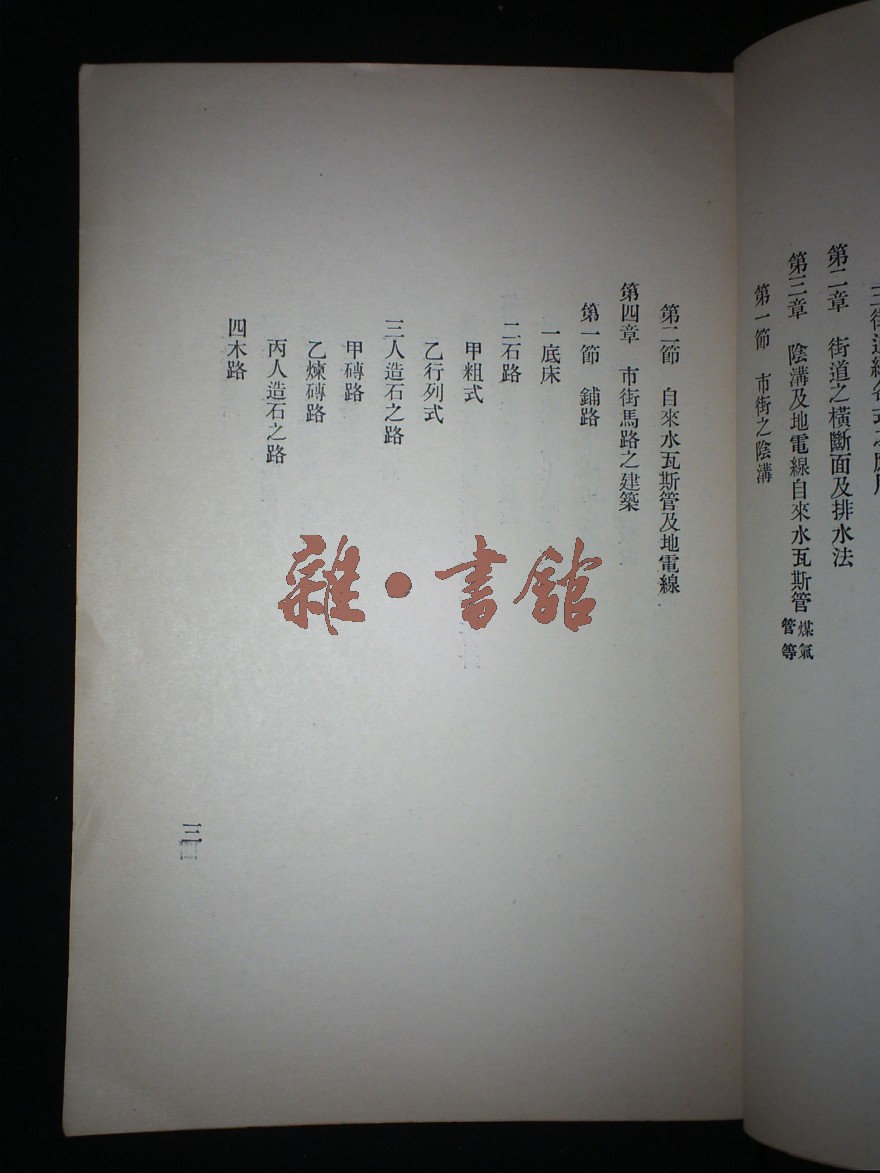 第二章　街道之橫斷面及排水法
第三章　陰溝及地電線自來水瓦斯管煤氣管等
第一節　市街之陰溝
第二節　自來水瓦斯管及地電線
第四章　市街馬路之建築
第一節　鋪路
一底床
二石路
甲粗式
乙行列式
三人造石之路
甲磚路
乙煉磚路
丙人造石之路
四木路
三
雜·書館